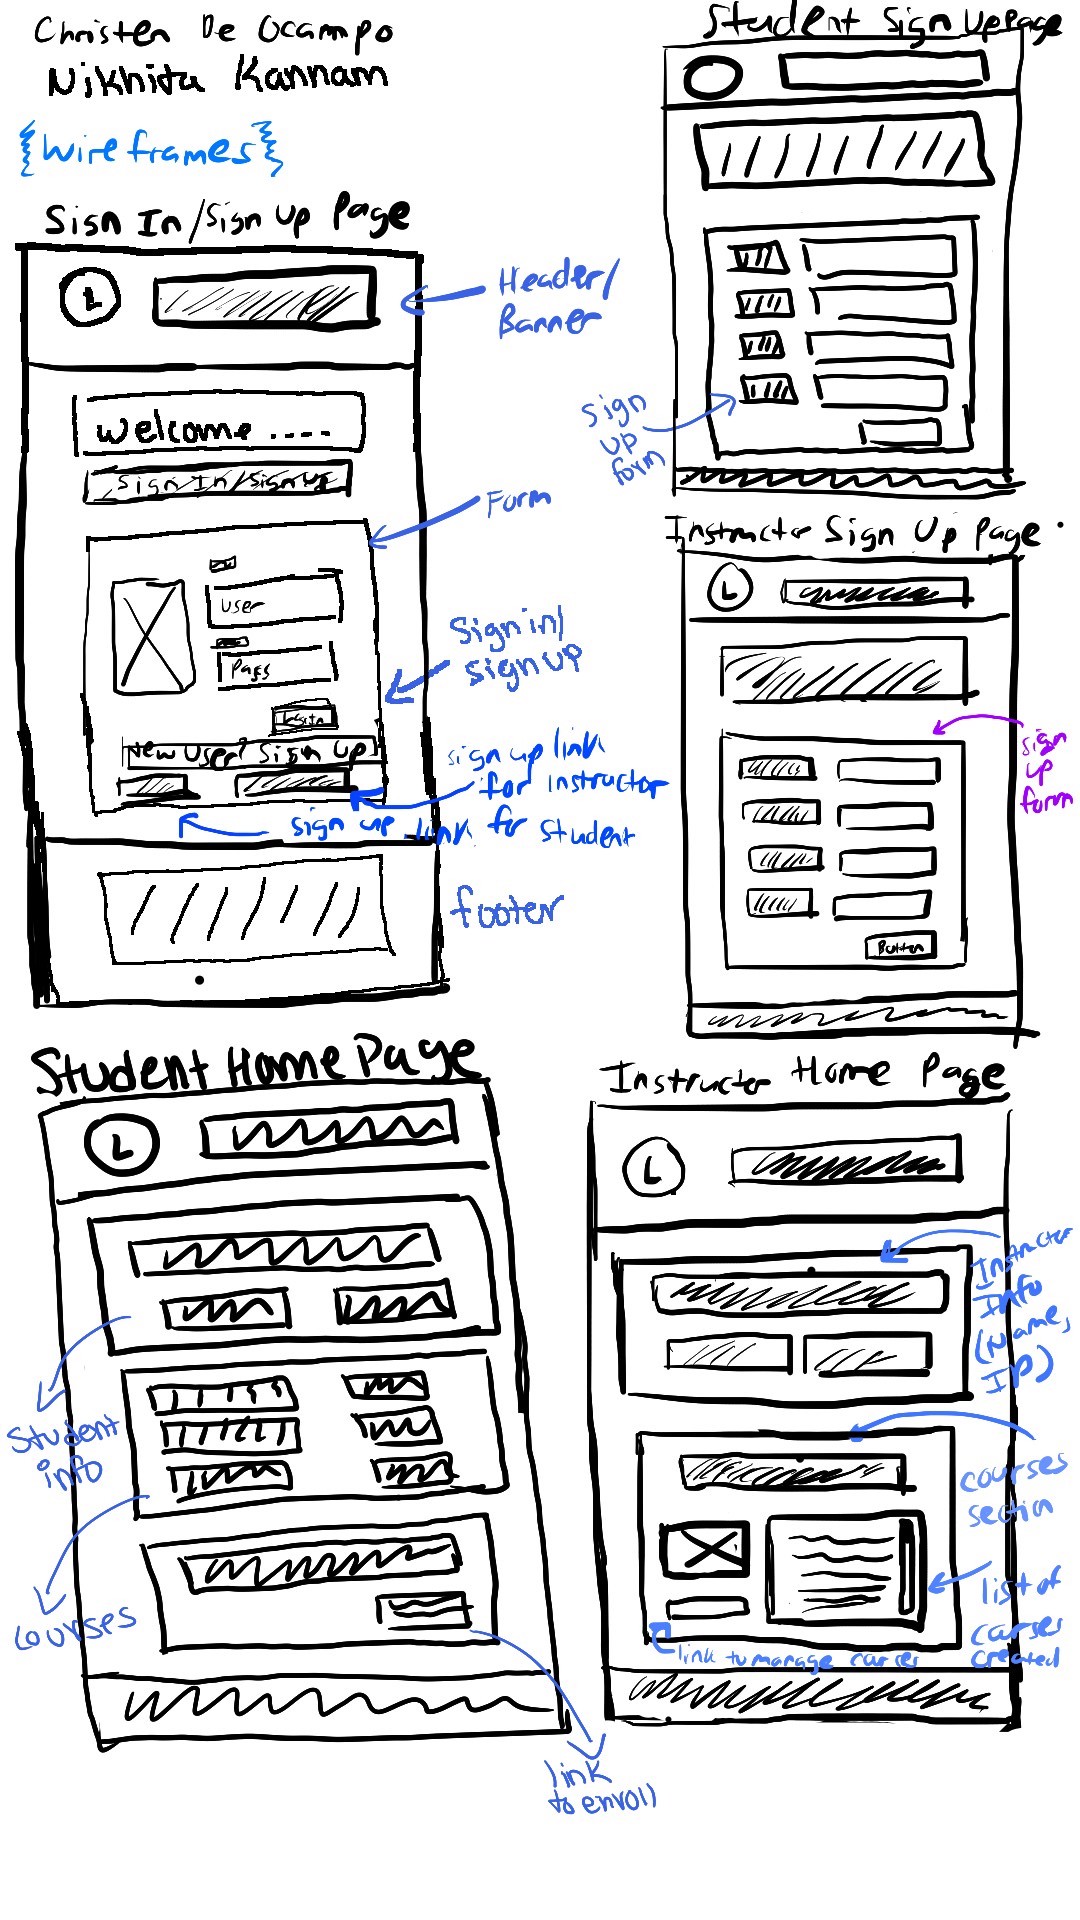 Christen De Ocampo
Nikhita Kannam
{Wireframes}
Sign In/Sign Up Page
L
Header/
Banner
Welcome ....
Sign In/Sign Up
Form
User
Pass
Sign in/
sign up
New User? Sign Up
sign up link
for instructor
sign up link for student
footer
Student Sign Up Page
sign
up
form
Instructer Sign Up Page
L
sign
up
form
Button
Student Home Page
L
Student
info
courses
link
to enroll
Instructer Home Page
L
Instructer
Info
(Name,
ID)
courses
section
list of
courses
created
link to manage courses